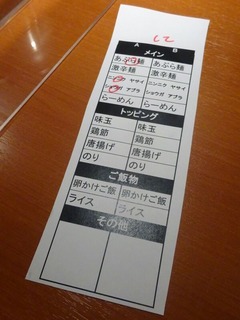 A B
メイン
あぶら麺 あぶら麺
激辛麺 激辛麺
ニンニク ヤサイ ニンニク ヤサイ
ショウガ アブラ ショウガ アブラ
らーめん らーめん
トッピング
味玉 味玉
鶏節 鶏節
唐揚げ 唐揚げ
のり のり
ご飯物
卵かけご飯 卵かけご飯
ライス ライス
その他